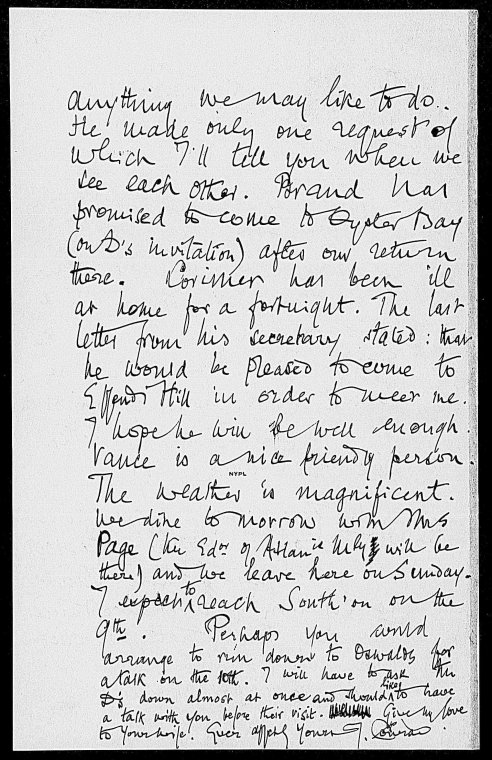 anything we may like to do..
He made only one request of
which I'll tell you when we
see each other. Brand has
promised to come to Oyster Bay
(on D's invitation) after our return
there. Lorimer has been ill
at home for a fortnight. The last
letter from his secretary stated: that
he would be pleased to come to
Effendi Hill in order to meet me.
I hope he will be well enough.
Vance is a nice friendly person.
NYPL
The weather is magnificent.
We dine to morrow with Mrs
Page (the Edor of Atlantic Mly will be
there) and we leave here on Sunday.
I expect to reach South'on on the
9th. Perhaps you could
arrange to run down to Oswalds for
a talk on the 10th. I will have to ask the
D's down almost at once and should like to have
a talk with you before their visit. Give my love
to Your wife. Ever affectly Yours J. Conrad.